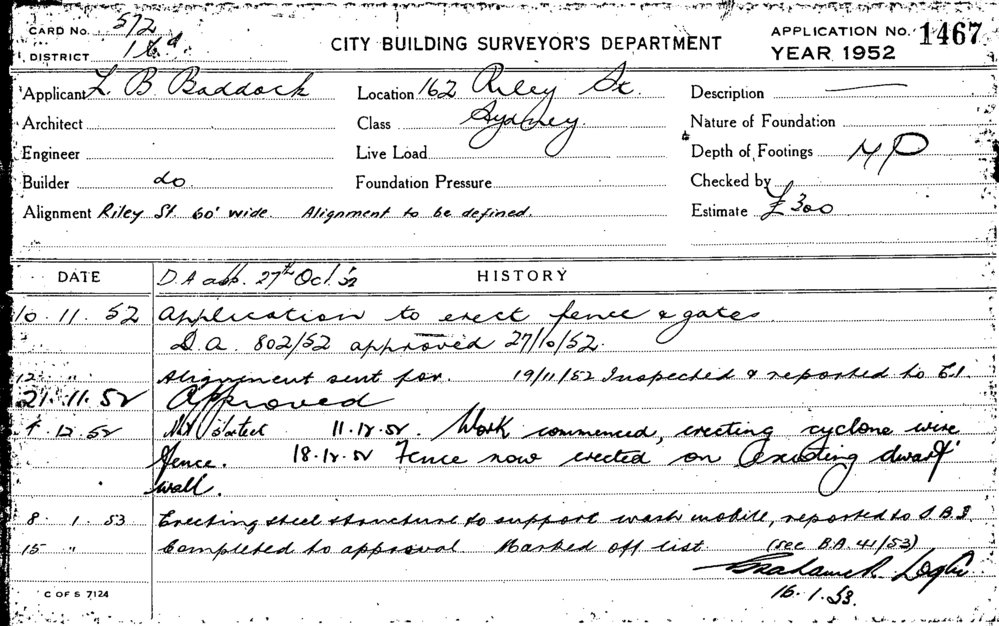 CARD NO. 572
DISTRICT 16d
CITY BUILDING SURVEYOR'S DEPARTMENT
APPLICATION NO. 1467
YEAR 1952
Applicant L. B. Baddock
Architect
Engineer
Builder do
Location 162 Riley St.
Class Sydney
Live Load
Foundation Pressure
Description
Nature of Foundation
Depth of Footings MP
Checked by
Estimate £300
Alignment Riley St. 60' wide. Alignment to be defined.
DATE
HISTORY
D.A app. 27th Oct. '52
10. 11. 52 Application to erect fence & gates
D.A. 802/52 approved 27/10/52.
12 " Alignment sent for. 19/11/52 Inspected & reported to C.I.
21. 11. 52 Approved
4. 12. 52 Not started 11.12.52. Work commenced, erecting cyclone wire
fence. 18.12.52 Fence now erected on existing dwarf
wall.
8. 1. 53 Erecting steel structure to support wash mobile, reported to
15 " Completed to approval. Marked off list (see B.A. 41/53)
16.1.53.
C OF S 7124